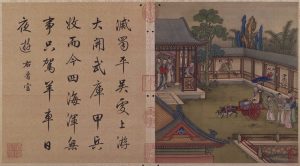 滅蜀平吳受上游
大開武庫甲兵
收而今四海渾無
事只駕羊車日
夜遊 右晉宫